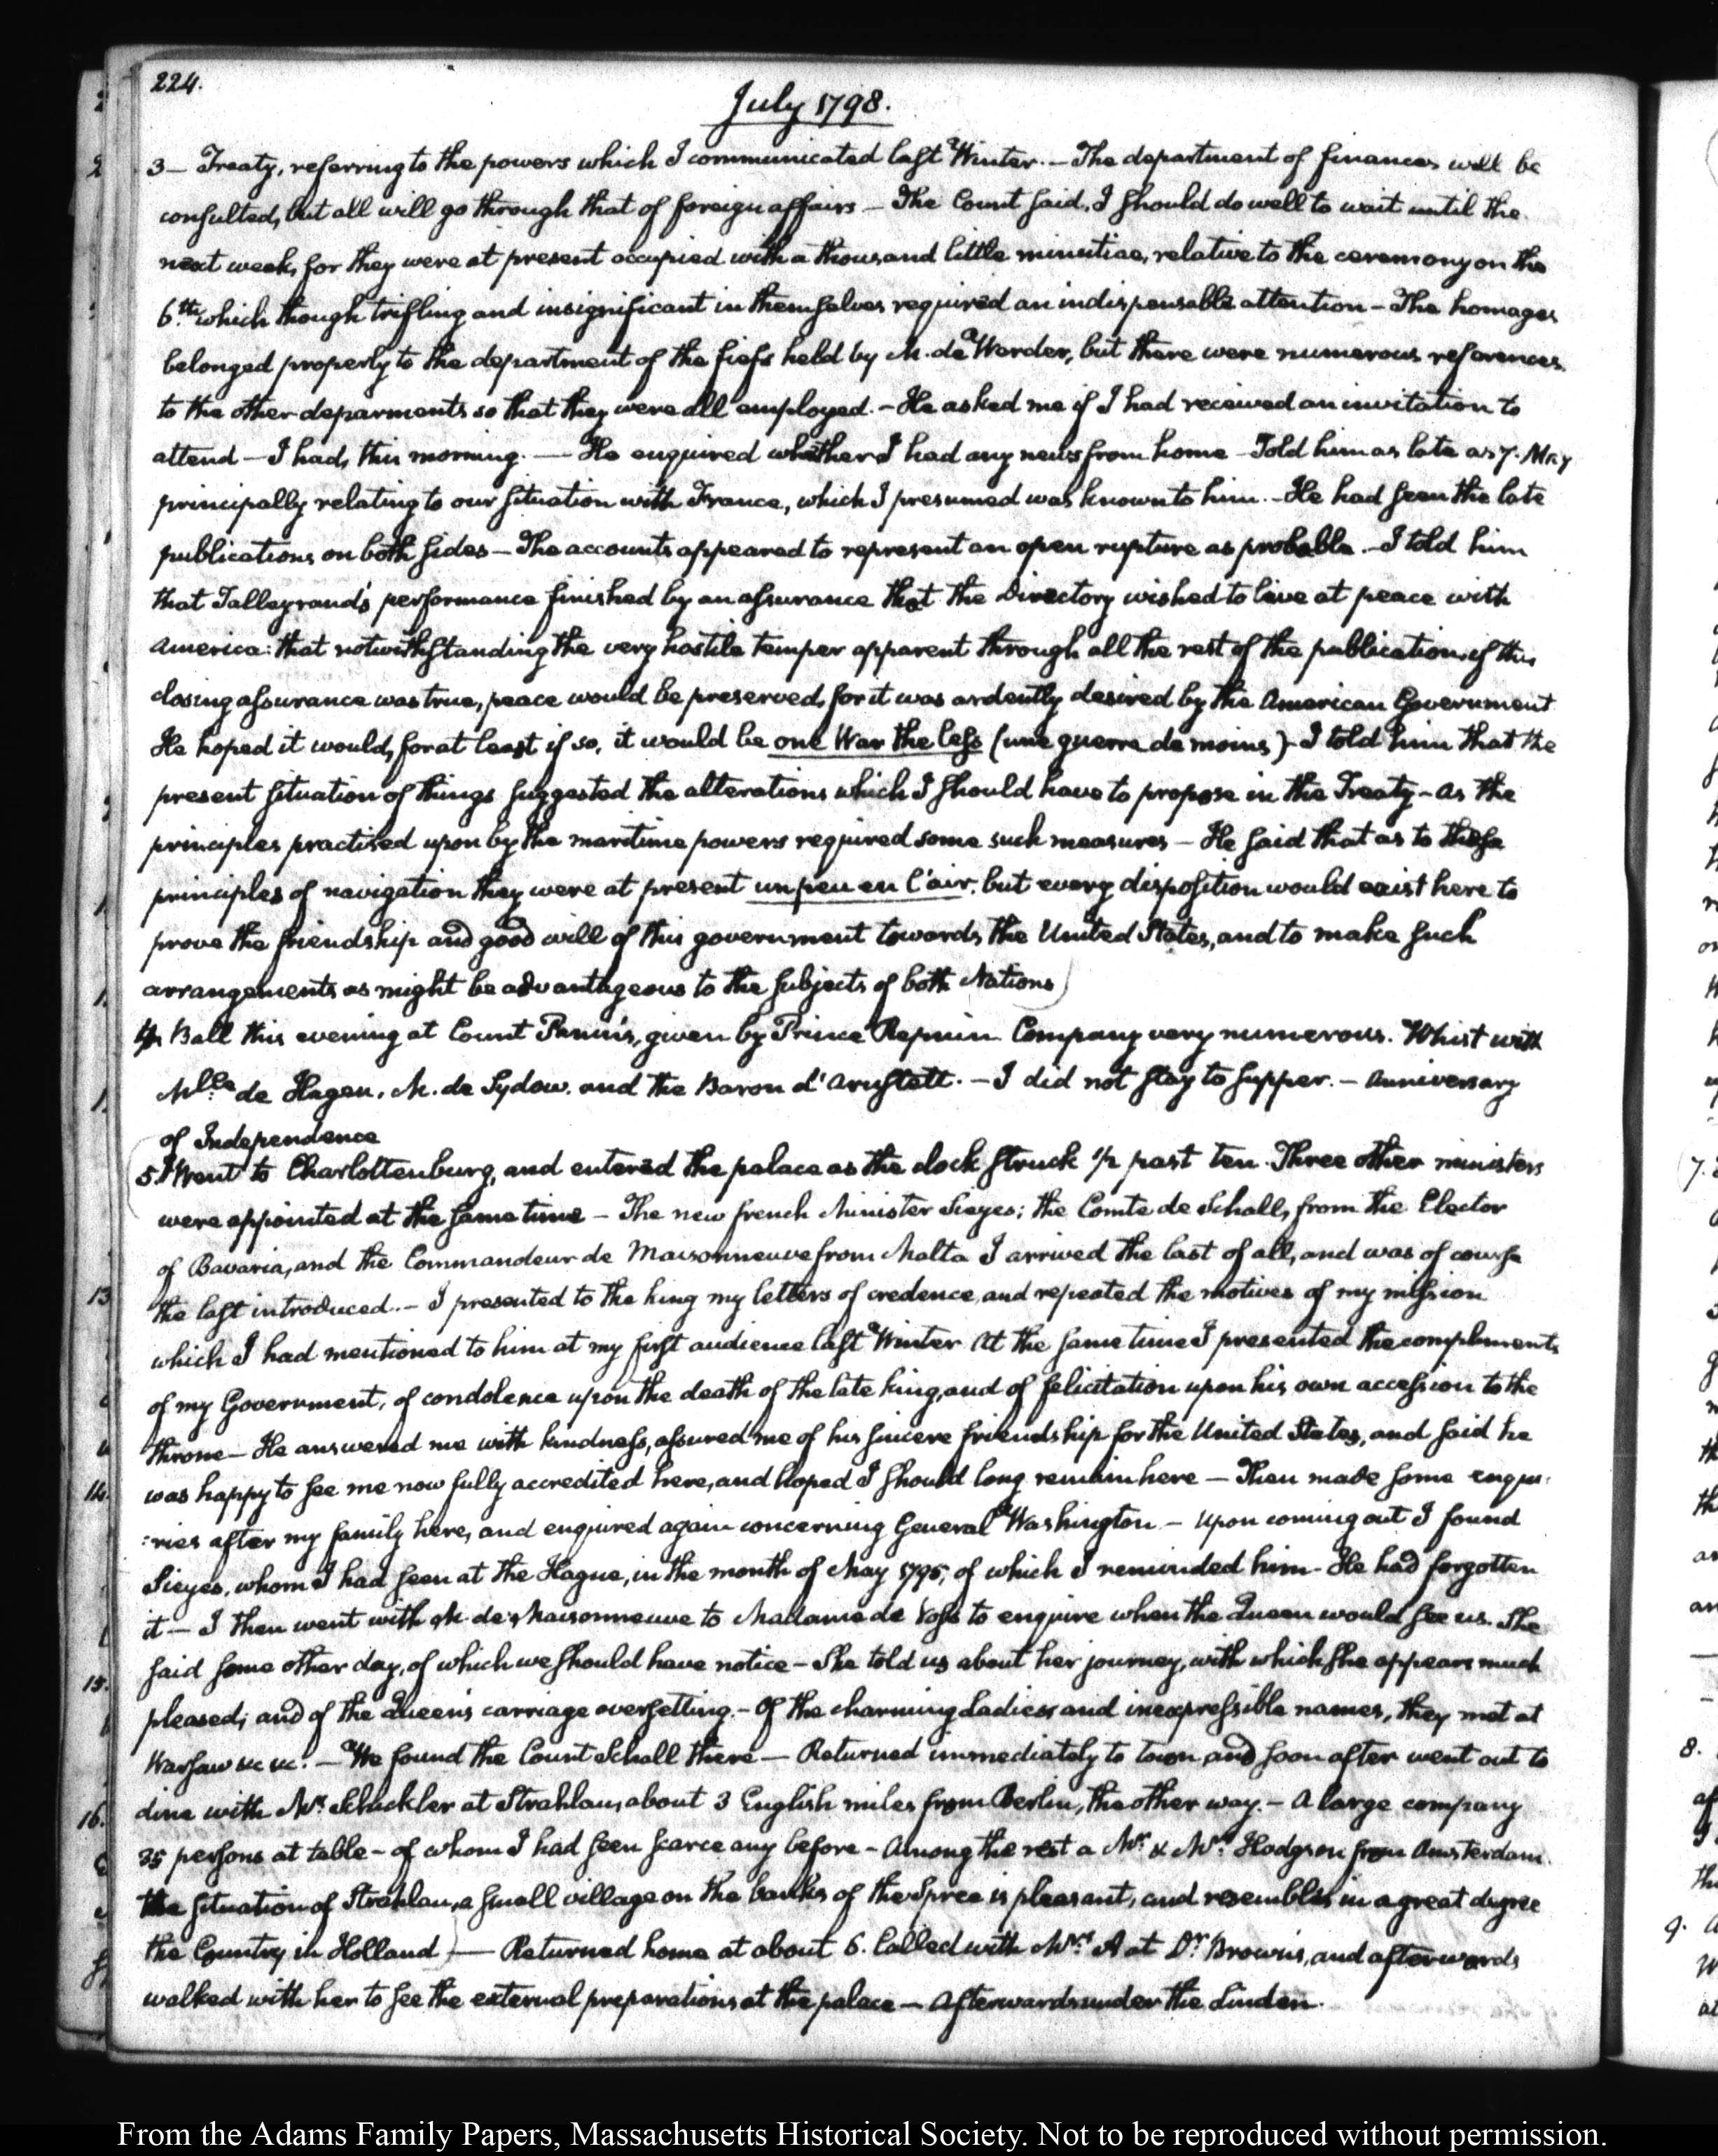 224.
July 1798.
3 — Treaty, referring to the powers which I communicated last Winter. — The department of finances will be
consulted, but all will go through that of foreign affairs — The Count said, I should do well to wait until the
next week, for they were at present occupied with a thousand little minutiae, relative to the ceremony on the
6th. which though trifling and insignificant in themselves required an indispensable attention — The homages
belonged properly to the department of the fiefs held by M. de Werder, but there were numerous references
to the other deparments so that they were all employed. — He asked me if I had received an invitation to
attend — I had, this morning. — He enquired whether I had any news from home — Told him as late as 7. May
principally relating to our situation with France, which I presumed was known to him. — He had seen the late
publications on both sides — The accounts appeared to represent an open rupture as probable. — I told him
that Talleyrand's performance finished by an assurance that the Directory wished to live at peace with
America: that notwithstanding the very hostile temper apparent through all the rest of the publication, if this
closing assurance was true, peace would be preserved, for it was ardently desired by the American Government
He hoped it would, for at least if so, it would be one War the less (une guerre de moins) — I told him that the
present situation of things suggested the alterations which I should have to propose in the Treaty — as the
principles practised upon by the maritime powers required some such measures — He said that as to these
principles of navigation they were at present un peu en l'air, but every disposition would exist here to
prove the friendship and good will of this government towards the United States, and to make such
arrangements as might be advantageous to the subjects of both Nations)
4. Ball this evening at Count Panin's, given by Prince Repnin. Company very numerous. Whist with
Mlle. de Hagen, M. de Sydow, and the Baron d'Arnstett. — I did not stay to supper. — Anniversary
of Independence
5. I Went to Charlottenburg, and entered the palace as the clock struck 1/2 past ten. Three other ministers
were appointed at the same time — The new french Minister Sieyes; the Comte de Schall, from the Elector
of Bavaria, and the Commandeur de Maisonneuve from Malta I arrived the last of all, and was of course
the last introduced. — I presented to the king my letters of credence, and repeated the motives of my mission
which I had mentioned to him at my first audience last Winter At the same time I presented the compliments
of my Government, of condolence upon the death of the late king, and of felicitation upon his own accession to the
throne — He answered me with kindness, assured me of his sincere friendship for the United States, and said he
was happy to see me now fully accredited here, and hoped I should long remain here — Then made some enqui-
:ries after my family here, and enquired again concerning General Washington — Upon coming out I found
Sieyes, whom I had seen at the Hague, in the month of May 1795, of which I reminded him — He had forgotten
it — I then went with M. de Maisonneuve to Madame de Voss to enquire when the Queen would see us. She
said some other day, of which we should have notice — She told us about her journey, with which she appears much
pleased; and of the Queen's carriage oversetting. — Of the charming Ladies and inexpressible names, they met at
Warsaw &c &c. — We found the Count Schall there — Returned immediately to town, and soon after went out to
dine with Mr. Schickler at Strahlau, about 3 English miles from Berlin, the other way. — A large company
35 persons at table — of whom I had seen scarce any before — Among the rest a Mr. & Mrs. Hodgson from Amsterdam.
the situation of Strahlau, a small village on the banks of the Spree is pleasant, and resembles in a great degree
the Country in Holland) — Returned home at about 6. Called with Mrs. A at Dr. Brown's, and afterwards
walked with her to see the external preparations at the palace — Afterwards under the Linden.
From the Adams Family Papers, Massachusetts Historical Society. Not to be reproduced without permission.